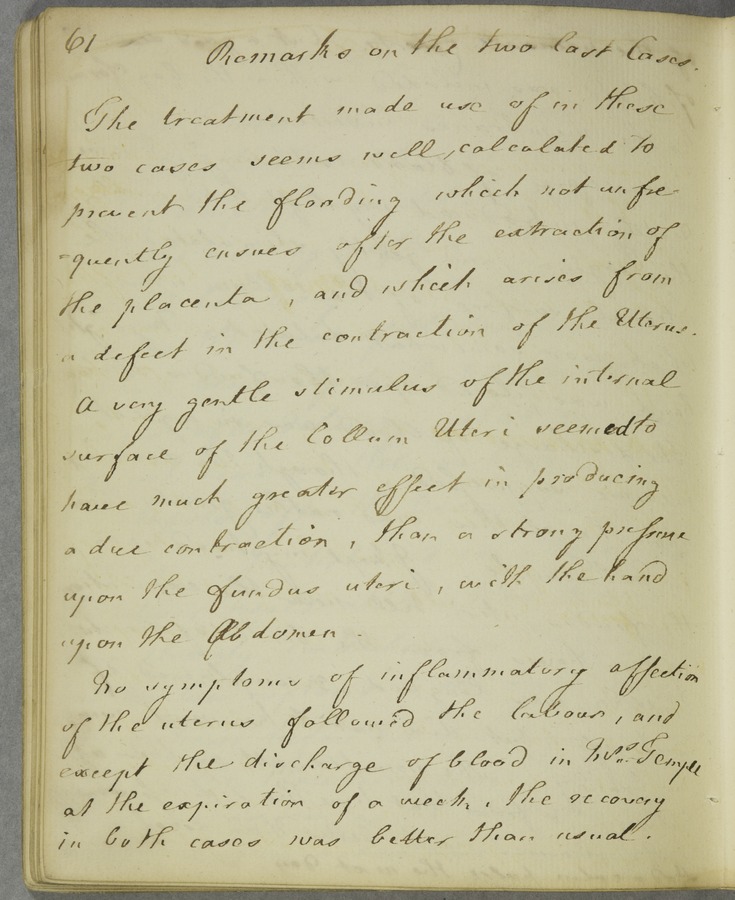 61
Remarks on the two last Cases.
The treatment made use of in these
two cases seems well calculated to
prevent the flooding which not unfre
=quently ensues after the extraction of
the placenta, and which arises from
a defect in the contraction of the Uterus.
A very gentle stimulus of the internal
surface of the Collum Uteri seemed to
have much greater effect in producing
a due contraction, than a strong pressure
upon the fundus uteri, with the hand
upon the Abdomen.
No symptoms of inflammatory affection
of the uterus followed the labour, and
except the discharge of blood in Mrs. Temple
at the expiration of a week, the recovery
in both cases was better than usual.